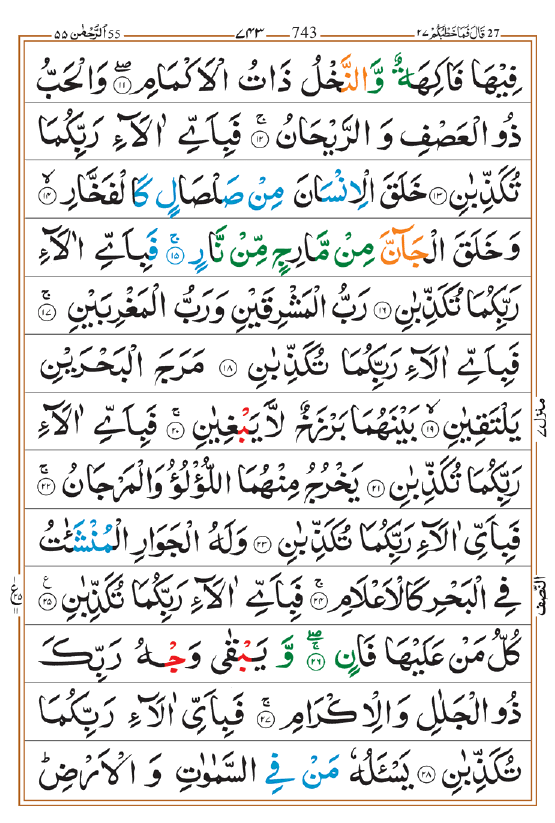 ٥٥ اَلرَّحْمٰن 55 ٧٤٣ 743 ٢٧ قَالَ فَمَا خَطْبُكُمْ 27
فِيْهَا فَاكِهَةٌ وَّالنَّخْلُ ذَاتُ الْاَكْمَامِ ۖ۝١١ وَالْحَبُّ
ذُو الْعَصْفِ وَ الرَّيْحَانُ ۚ۝١٢ فَبِاَيِّ اٰلَآءِ رَبِّكُمَا
تُكَذِّبٰنِ ۝١٣ خَلَقَ الْاِنْسَانَ مِنْ صَلْصَالٍ كَالْفَخَّارِ ۙ۝١٤
وَ خَلَقَ الْجَآنَّ مِنْ مَّارِجٍ مِّنْ نَّارٍ ۚ۝١٥ فَبِاَيِّ اٰلَآءِ
رَبِّكُمَا تُكَذِّبٰنِ ۝١٦ رَبُّ الْمَشْرِقَيْنِ وَرَبُّ الْمَغْرِبَيْنِ ۚ۝١٧
فَبِاَيِّ اٰلَآءِ رَبِّكُمَا تُكَذِّبٰنِ ۝١٨ مَرَجَ الْبَحْرَيْنِ
يَلْتَقِيٰنِ ۙ۝١٩ بَيْنَهُمَا بَرْزَخٌ لَّا يَبْغِيٰنِ ۚ۝٢٠ فَبِاَيِّ اٰلَآءِ
رَبِّكُمَا تُكَذِّبٰنِ ۝٢١ يَخْرُجُ مِنْهُمَا اللُّؤْلُؤُ وَالْمَرْجَانُ ۚ۝٢٢
فَبِاَيِّ اٰلَآءِ رَبِّكُمَا تُكَذِّبٰنِ ۝٢٣ وَلَهُ الْجَوَارِ الْمُنْشَئٰتُ
فِي الْبَحْرِ كَالْاَعْلَامِ ۚ۝٢٤ فَبِاَيِّ اٰلَآءِ رَبِّكُمَا تُكَذِّبٰنِ ۧ۝٢٥
كُلُّ مَنْ عَلَيْهَا فَانٍ ۖ۝٢٦ وَّ يَبْقٰى وَجْهُ رَبِّكَ
ذُو الْجَلٰلِ وَالْاِكْرَامِ ۚ۝٢٧ فَبِاَيِّ اٰلَآءِ رَبِّكُمَا
تُكَذِّبٰنِ ۝٢٨ يَسْـَٔلُهٗ مَنْ فِي السَّمٰوٰتِ وَ الْاَرْضِ ؕ
منزل ٧
النصف